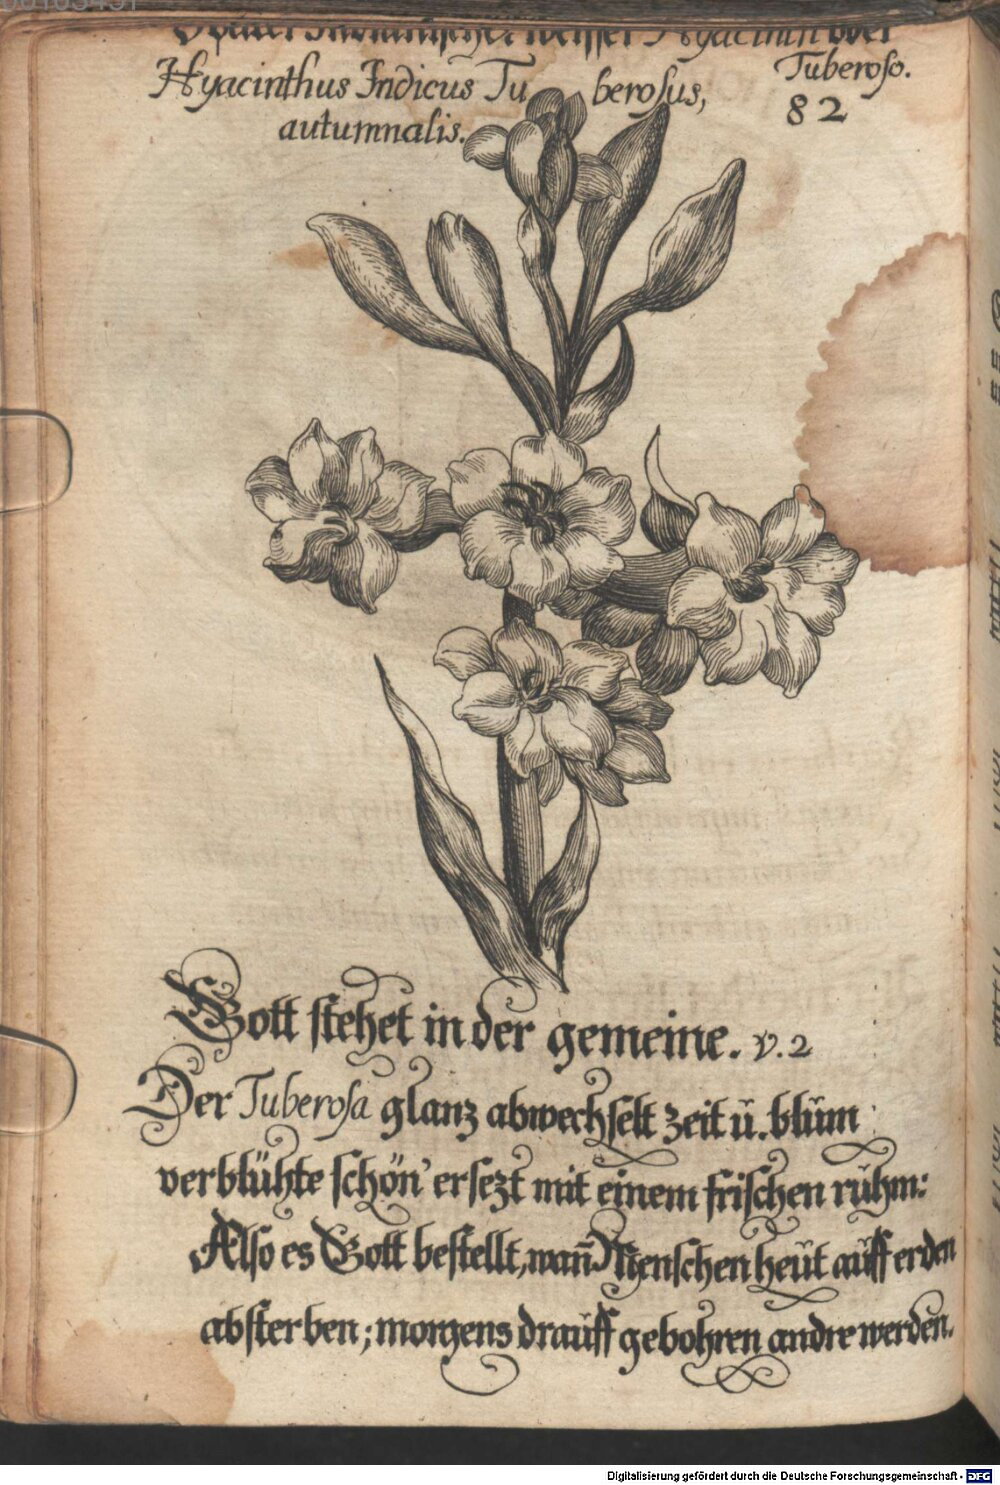 Später Indianischer weisser Hyacinth oder
Hyacinthus Indicus Tuberosus,
Tuberoso.
autumnalis.
82
Gott stehet in der gemeine. v. 2
Der Tuberosa glanz abwechselt zeit ü. blüm
verblühte schön' ersezt mit einem frischen rühm:
Also es Gott bestellt, wañ Menschen heüt aüff erden
absterben; morgens draüff gebohren andre werden.
Digitalisierung gefördert durch die Deutsche Forschungsgemeinschaft - DFG